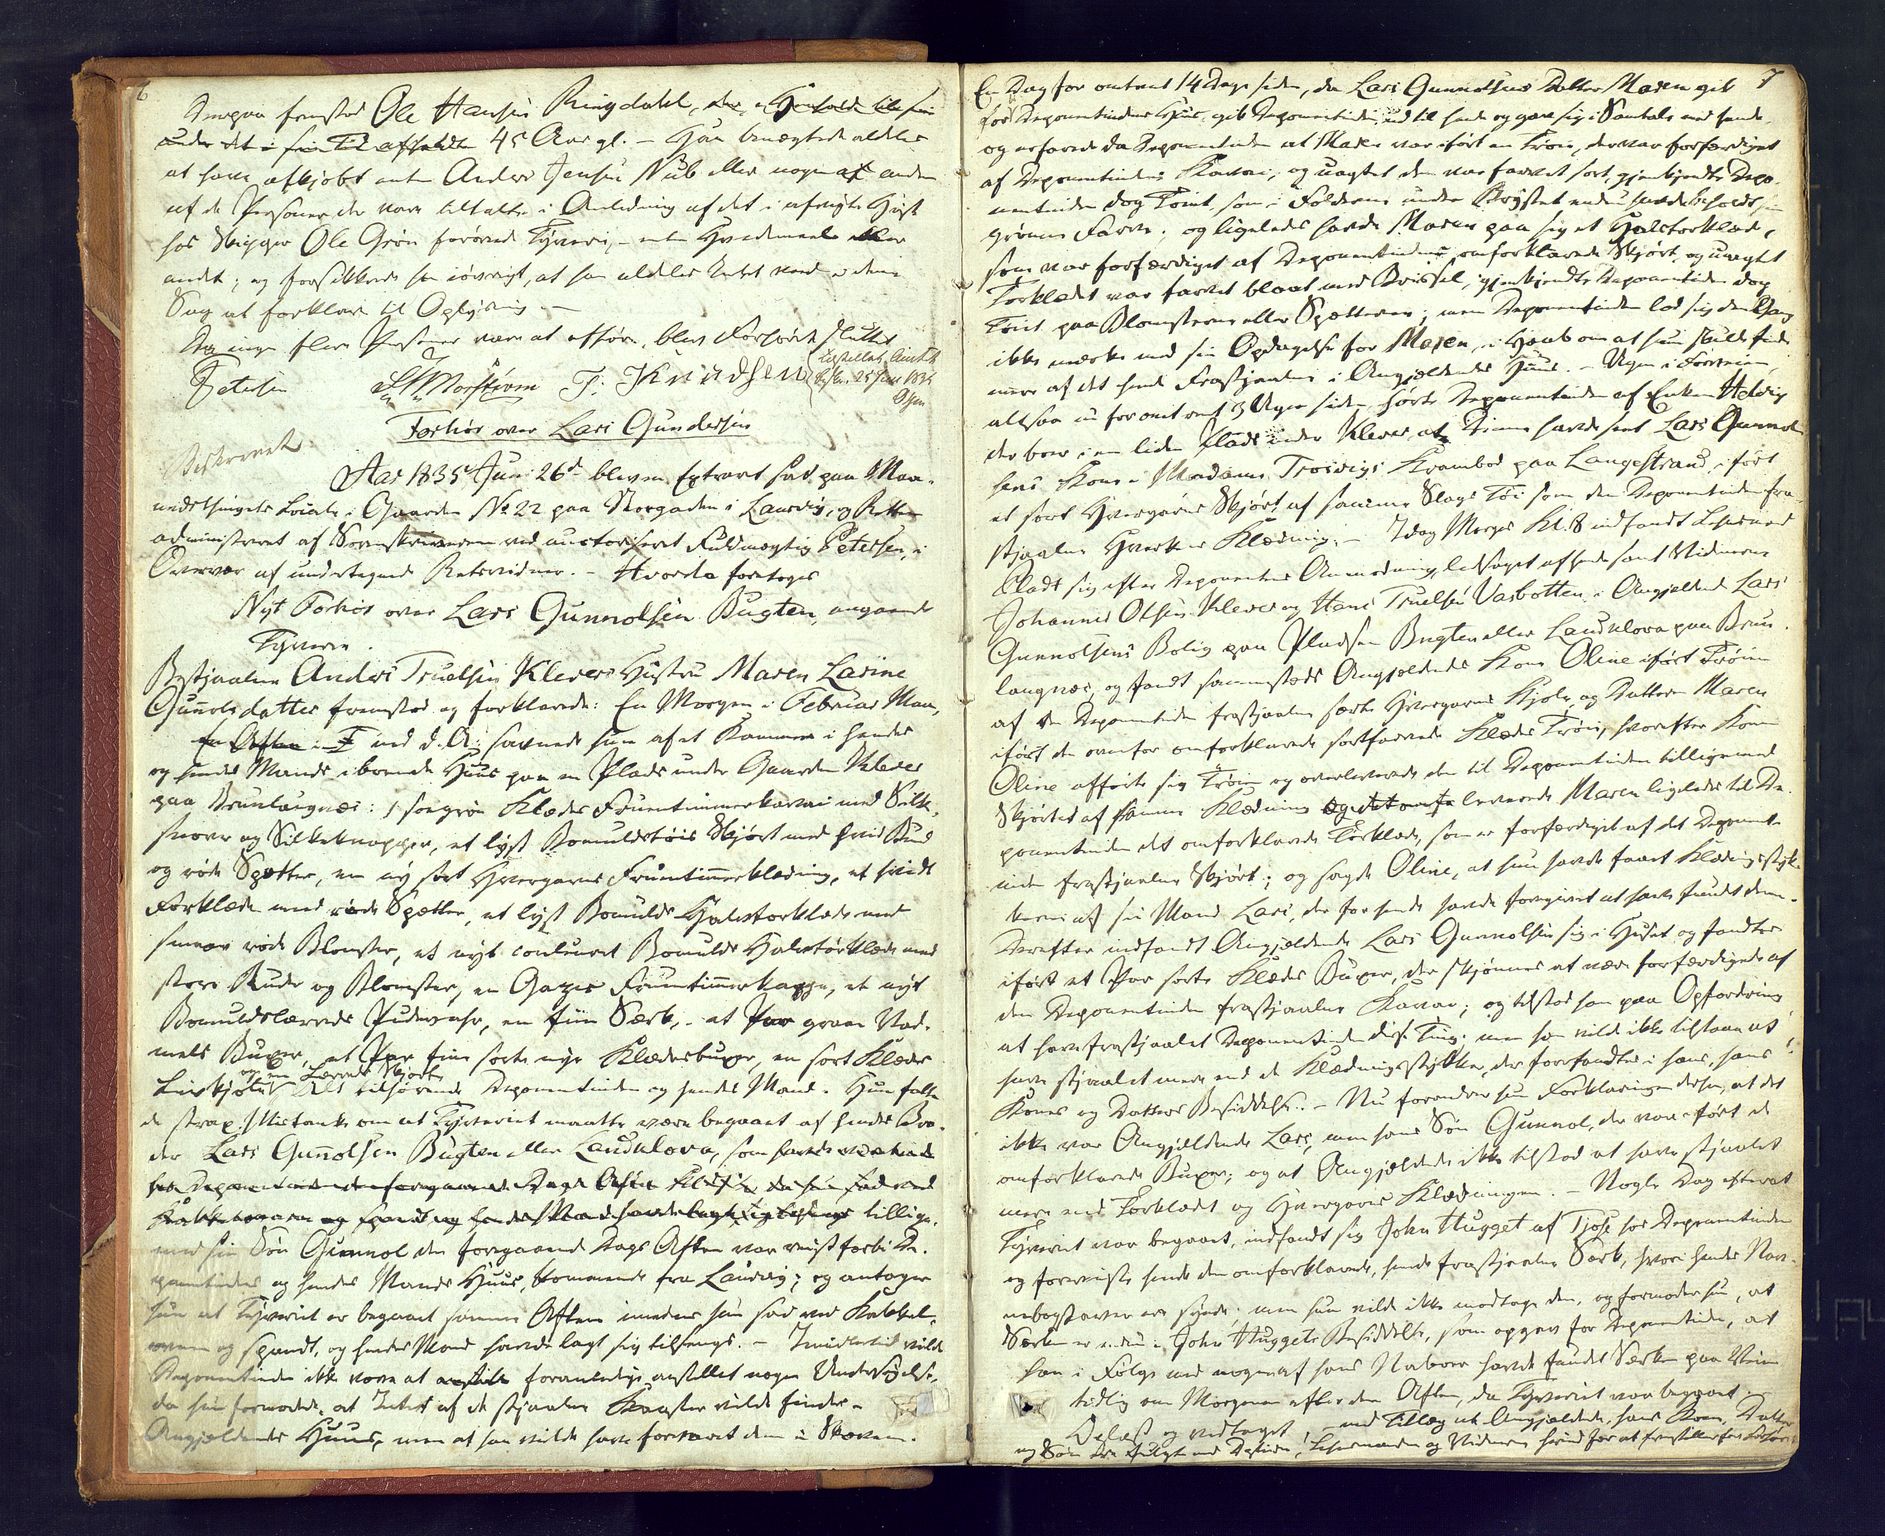 6
Derpaa fremstod Ole Hansen Ringdahl,
45 Aar gl. – Han benægtede aldeles
at have afkjøbt enten Anders Jensen Nub eller nogen af anden
af de Personer, der vare tiltalte i Anledning af det i afvigte Høst
hos Skipper Ole Grøn forøvede Tyveri, enten Hvedemeel eller
andet; og forsikkrede han iøvrigt, at han aldeles Intet veed i denne
Sag at forklare til Oplysning. –
Da ingen flere Personer vare at afhøre, blev Forhøret sluttet
Petersen Morstrøm T. Knudsen
Forhør over Lars Gundersen
Beskrevet
Aar 1835 Juni 26de blev en Extraret sat paa Maa-
nedstingets Locale i Gaarden No 22 paa Norgaden i Laurvig, og Retten
administreret af Sorenskriveren ved auctoriseret Fuldmægtig Petersen, i
Overvær af undertegnede Retsvidner. – Hvorda foretoges
Nyt Forhør over Lars Gunnolsen Bugten, angaaende
Tyverie.
Bestjaalne Anders Truelsen Klevers Hustru Maren Larine
Gunnolsdatter fremstod og forklarede: En Morgen i Februar Maa-
ned d. A. savnede hun af et Kammer i hendes
og hendes Mands iboende Huus paa en Plads under Gaarden Klever
paa Brunlaugnæs: 1 søegrøn Klædes Fruentimmerkavai med Silke-
snorer og Silkeknapper, et lyst Bomuldstøis Skjørt med hvid Bund
og røde Spætter, en ny sort Hvergarns Fruentimmerklædning, et hvidt
Forklæde med røde Spætter, et lyst Bomulds Halstørklæde med
smaae røde Blomster, et nyt couleuret Bomulds Halstørklæde med
store Ruder og Blomster, en Gazes Fruentimmerkappe, et nyt
Bomuldslærreds Pudevahr, en fiin Særk, et Par graae Vad-
mels Buxer, et Par fine sorte nye Klædesbuxer, en sort Klædes
og en Lærreds Skjorte
Livkjole Alt tilhørende Deponentinden og hendes Mand. Hun fatte-
de strax Mistanke om at Tyveriet maatte være begaaet af hendes Bro-
der Lars Gunnolsen Bugten eller Laukulova, som
tillige-
med sin Søn Gunnol den foregaaende Dags Aften var reist forbi De-
ponentindes og hendes Mands Huus, kommende fra Laurvig; og antager
hun at Tyveriet er begaaet samme Aften imedens hun sad ved Kakkel-
ovnen og spandt, og hendes Mand havde lagt sig tilsengs. – Imidlertid vilde
Deponentinden ikke vove at foranledige anstillet nogen Undersøgelse,
da hun formodede, at Intet af de stjaalne Koster vilde findes i
Angjældendes Huus, men at han vilde have forvaret dem i Skoven.
7
En Dag for omtrent 14 Dage siden, da Lars Gunnolsens Datter Maren gik
forbi Deponentindens Huus, gik Deponentinden ud til hende og gav sig i Samtale med hende,
og erfarede da Deponentinden at Maren var iført en Trøie, der var forfærdiget
af Deponentindens Kavai, og uagtet den var farvet sort, gjenkjendte Depo-
nentinden dog Tøiet, som i Folderne under Brystet endnu havde beholdt sin
grønne Farve; og ligeledes havde Maren paa sig et Halstørklæde,
som var forfærdiget af Deponentindens omforklarede Skjørt, og uagtet
Tørklædet var farvet blaat med Brissel, gjenkjendte Deponentinden dog
Tøiet paa Blomsterne eller Spætterne; men Deponentinden lod sig den Gang
ikke mærke med sin Opdagelse for Maren, i Haab om at hun skulde finde
mere af det hende Frastjaalne i Angjældendes Huus. – Ugen i Forveien,
altsaa nu for omtrent 3 Uger siden, hørte Deponentinden af Enken Helvig
der boer i en liden Plads under Klever, at Trine havde seet Lars Gunnol-
sens Kone i Madame Treiders Krambod paa Langestrand, iført
et sort Hvergarns Skjørt af samme Slags Tøi som den Deponentinden fra-
stjaalne Hvergarns Klædning. – Idag Morges Kl. 8 indfandt Lehnsmand
Cladt sig efter Deponentens Anmodning, ledsaget af hende samt Vidnerne
Johannes Olsen Klever og Hans Truelsen Vasbotten, i Angjældende Lars
Gunnolsens Bolig paa Pladsen Bugten eller Laukulova paa Brun-
laugnæs, og fandt sammesteds Angjældendes Kone Oline iført Trøien
af den Deponentinden frastjaalne sorte Hvergarns Kjole, og Datteren Maren
iført den ovenfor omforklarede sortfarvede Klædes Trøie, hvorefter Konen
Oline afførte sig Trøien og overleverede den til Deponentinden tilligemed
Skjørtet af samme Klædning leverede Maren ligeledes til De-
ponentinden det omforklarede Tørklæde, som er forfærdiget af det Deponent-
inden frastjaalne Skjørt; og sagde Oline, at hun havde faaet Klædningsstyk-
kerne af sin Mand Lars, der for hende havde foregivet at have fundet dem.
Derefter indfandt Angjældende Lars Gunnolsen sig i Huset og fandtes
iført et Par sorte Klædes Buxer, der skjønnes at være forfærdigede af
den Deponentinden frastjaalne Kavai; og tilstod han paa Opfordring
at have frastjaalet Deponentinden disse Ting; men han vilde ikke tilstaae at
have stjaalet mere end de Klædningsstykker, der forefandtes i hans, hans
Kones og Datters Besiddelse. – Nu forandrer hun Forklaringen derhen, at det
ikke var Angjældende Lars, men hans Søn Gunnol, der var iført de
omforklarede Buxer; og at Angjældende ikke tilstod at have stjaalet
mere end Tørklædet og Hvergarns Klædningen. – Nogle Dage efterat
Tyveriet var begaaet, indfandt sig John Hugget af Tjose hos Deponentinden
og foreviste hende den omforklarede, hende frastjaalne Særk, hvori hendes Nav-
nebogstaver ere syede; men hun vilde ikke modtage den, og formoder hun, at
Særken er endnu i John Huggets Besiddelse, som opgav for Deponentinden, at
han i Følge med nogen af hans Naboer havde fundet Særken paa Veien
tidlig om Morgenen efter den Aften, da Tyveriet var begaaet.
Oplæst og vedtaget, med Tillæg at Angjældende, hans Kone, Datter
og Søn Lehnsmanden og Vidnerne herind for at fremstilles for Forhøret